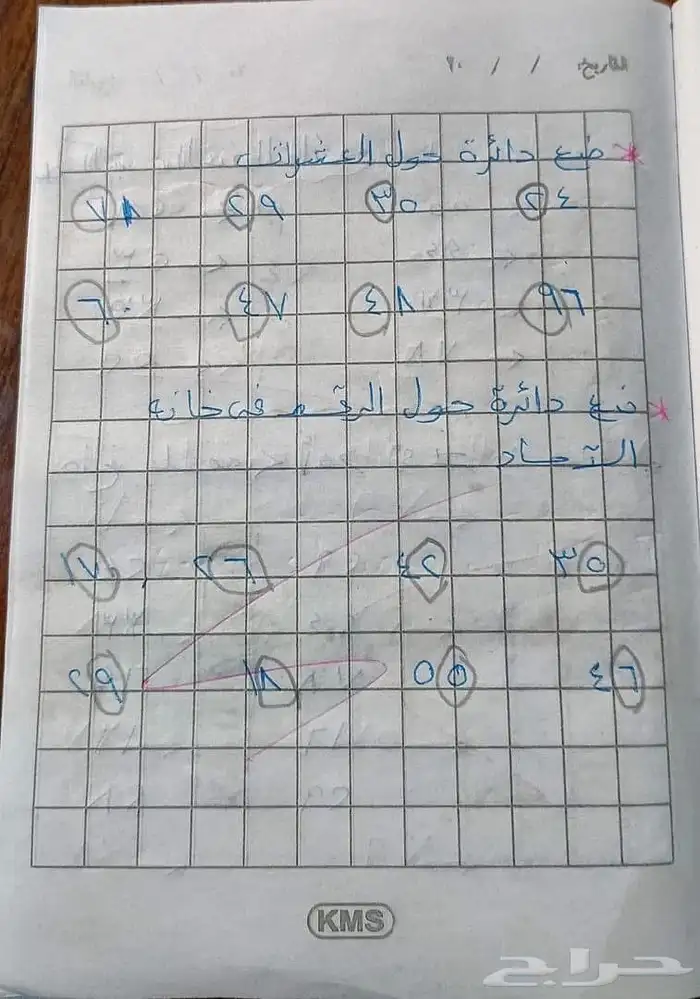 التاريخ / / ٢٠
* ضع دائرة حول العشرات
٢٤ ٣٥ ٢٩ ٧٨
٩٦ ٤٨ ٤٧ ٦٠
* ضع دائرة حول الرقم في خانة
الآحاد
٣٥ ٤٢ ٢٦ ١٧
٤٦ ٥٥ ١٨ ٢٩
KMS
حراج